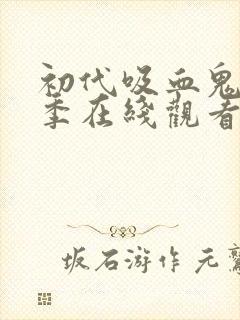 初代吸血鬼
季在綫觀看
坂石游作元